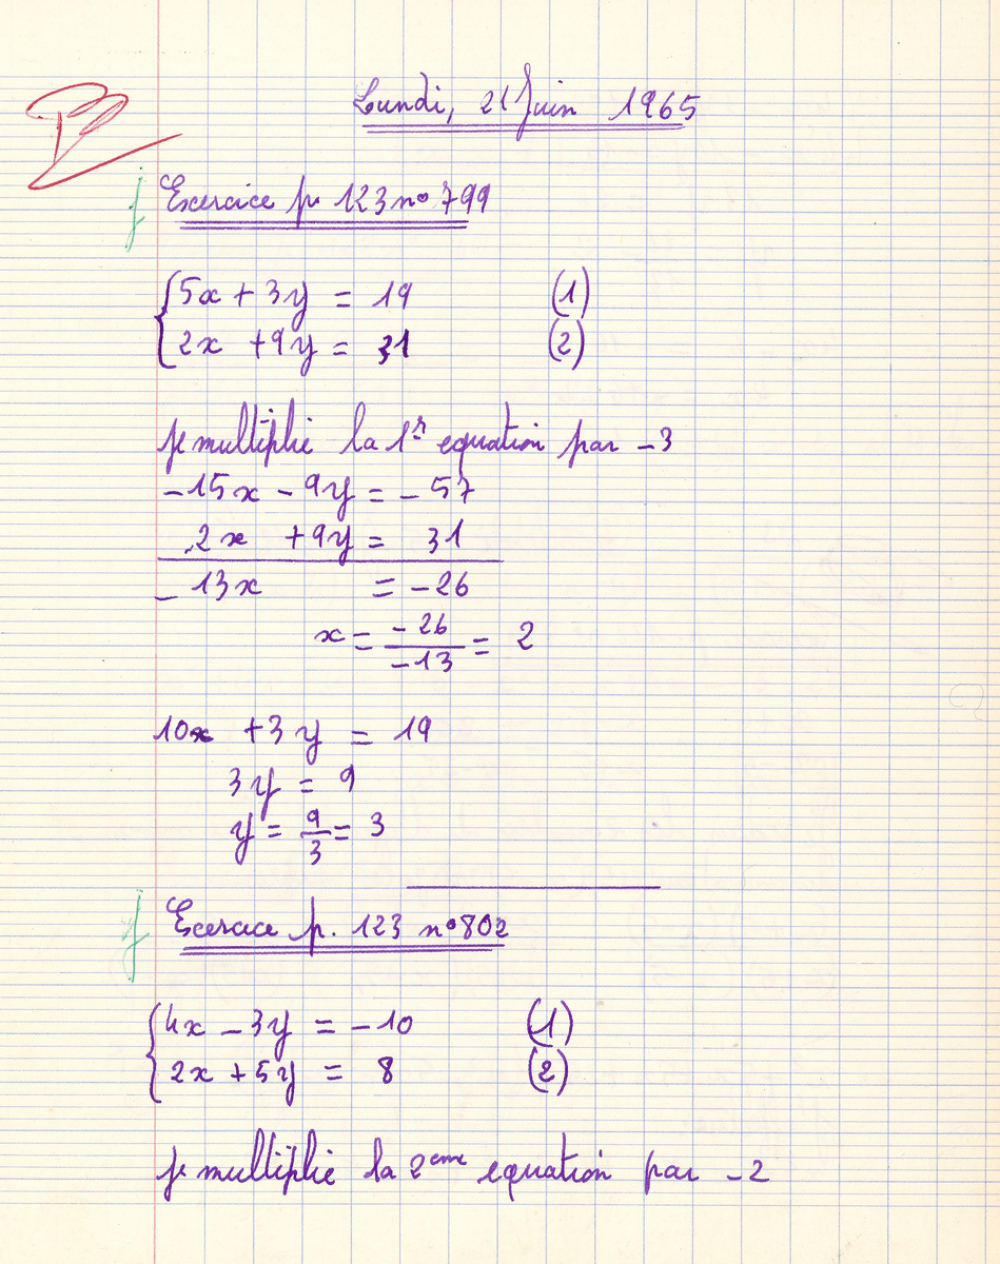 Lundi, 21 Juin 1965
Exercice p. 123 n° 799
5x + 3y = 19 (1)
2x + 9y = 31 (2)
je multiplie la 1r equation par -3
-15x - 9y = -57
2x + 9y = 31
-13x = -26
x = -26/-13 = 2
10x + 3y = 19
3y = 9
y = 9/3 = 3
Excercice p. 123 n° 802
4x - 3y = -10 (1)
2x + 5y = 8 (2)
je multiplie la 2eme equation par -2